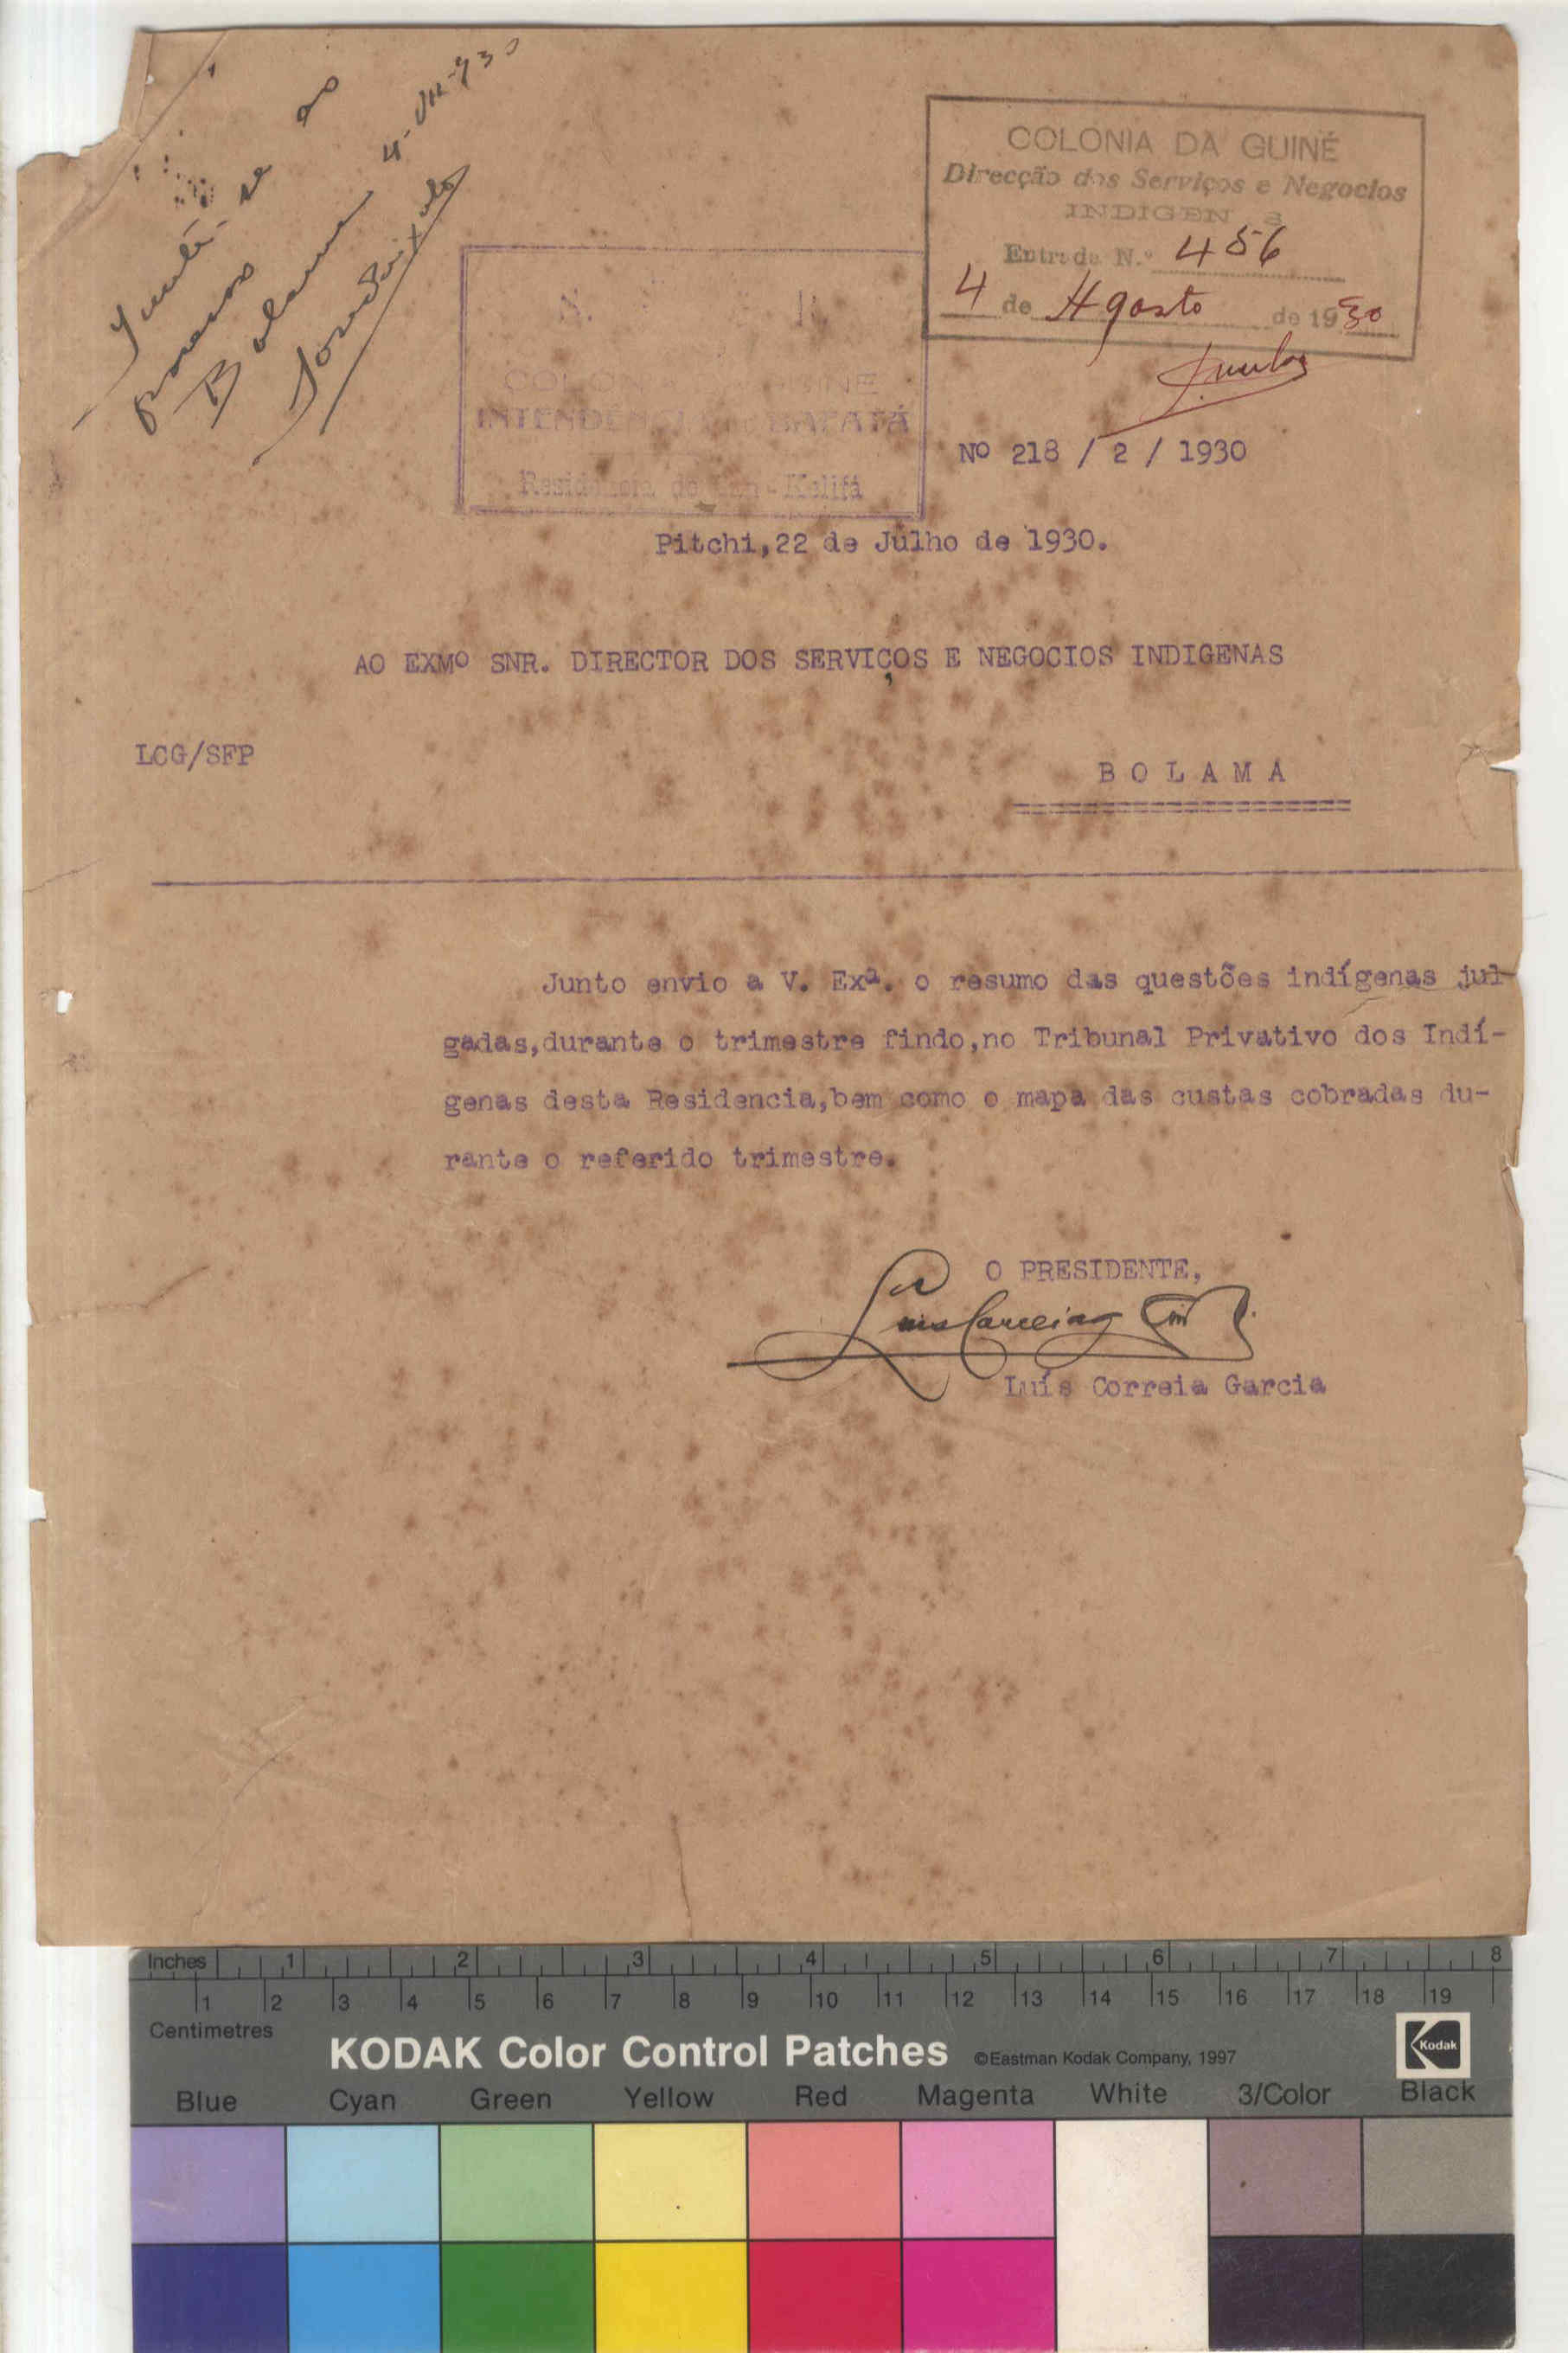 Junte-se ao
processo
Bolama 4-VIII-930
COLONIA DA GUINÉ
Direcção dos Serviços e Negocios
INDIGEN S
Entrada N.º 456
4 de Agosto de 1930
S. R.
COLONIA DA GUINÉ
INTENDÊNCIA DE BAFATÁ
Residencia de Kalifá
Nº 218 / 2 / 1930
Pitchi,22 de Julho de 1930.
AO EXMº SNR. DIRECTOR DOS SERVIÇOS E NEGOCIOS INDIGENAS
LCG/SFP
B O L A M A
Junto envio a V. Exª. o resumo das questões indígenas jul-
gadas,durante o trimestre findo,no Tribunal Privativo dos Indí-
genas desta Residencia,bem como o mapa das custas cobradas du-
rante o referido trimestre.
O PRESIDENTE,
Luís Correia Garcia
Inches 1 2 3 4 5 6 7 8
1 2 3 4 5 6 7 8 9 10 11 12 13 14 15 16 17 18 19
Centimetres
KODAK Color Control Patches ©Eastman Kodak Company, 1997 Kodak
Blue Cyan Green Yellow Red Magenta White 3/Color Black